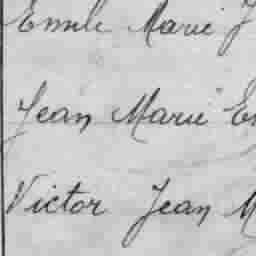 Emile Marie J
Jean Marie E
Victor Jean M